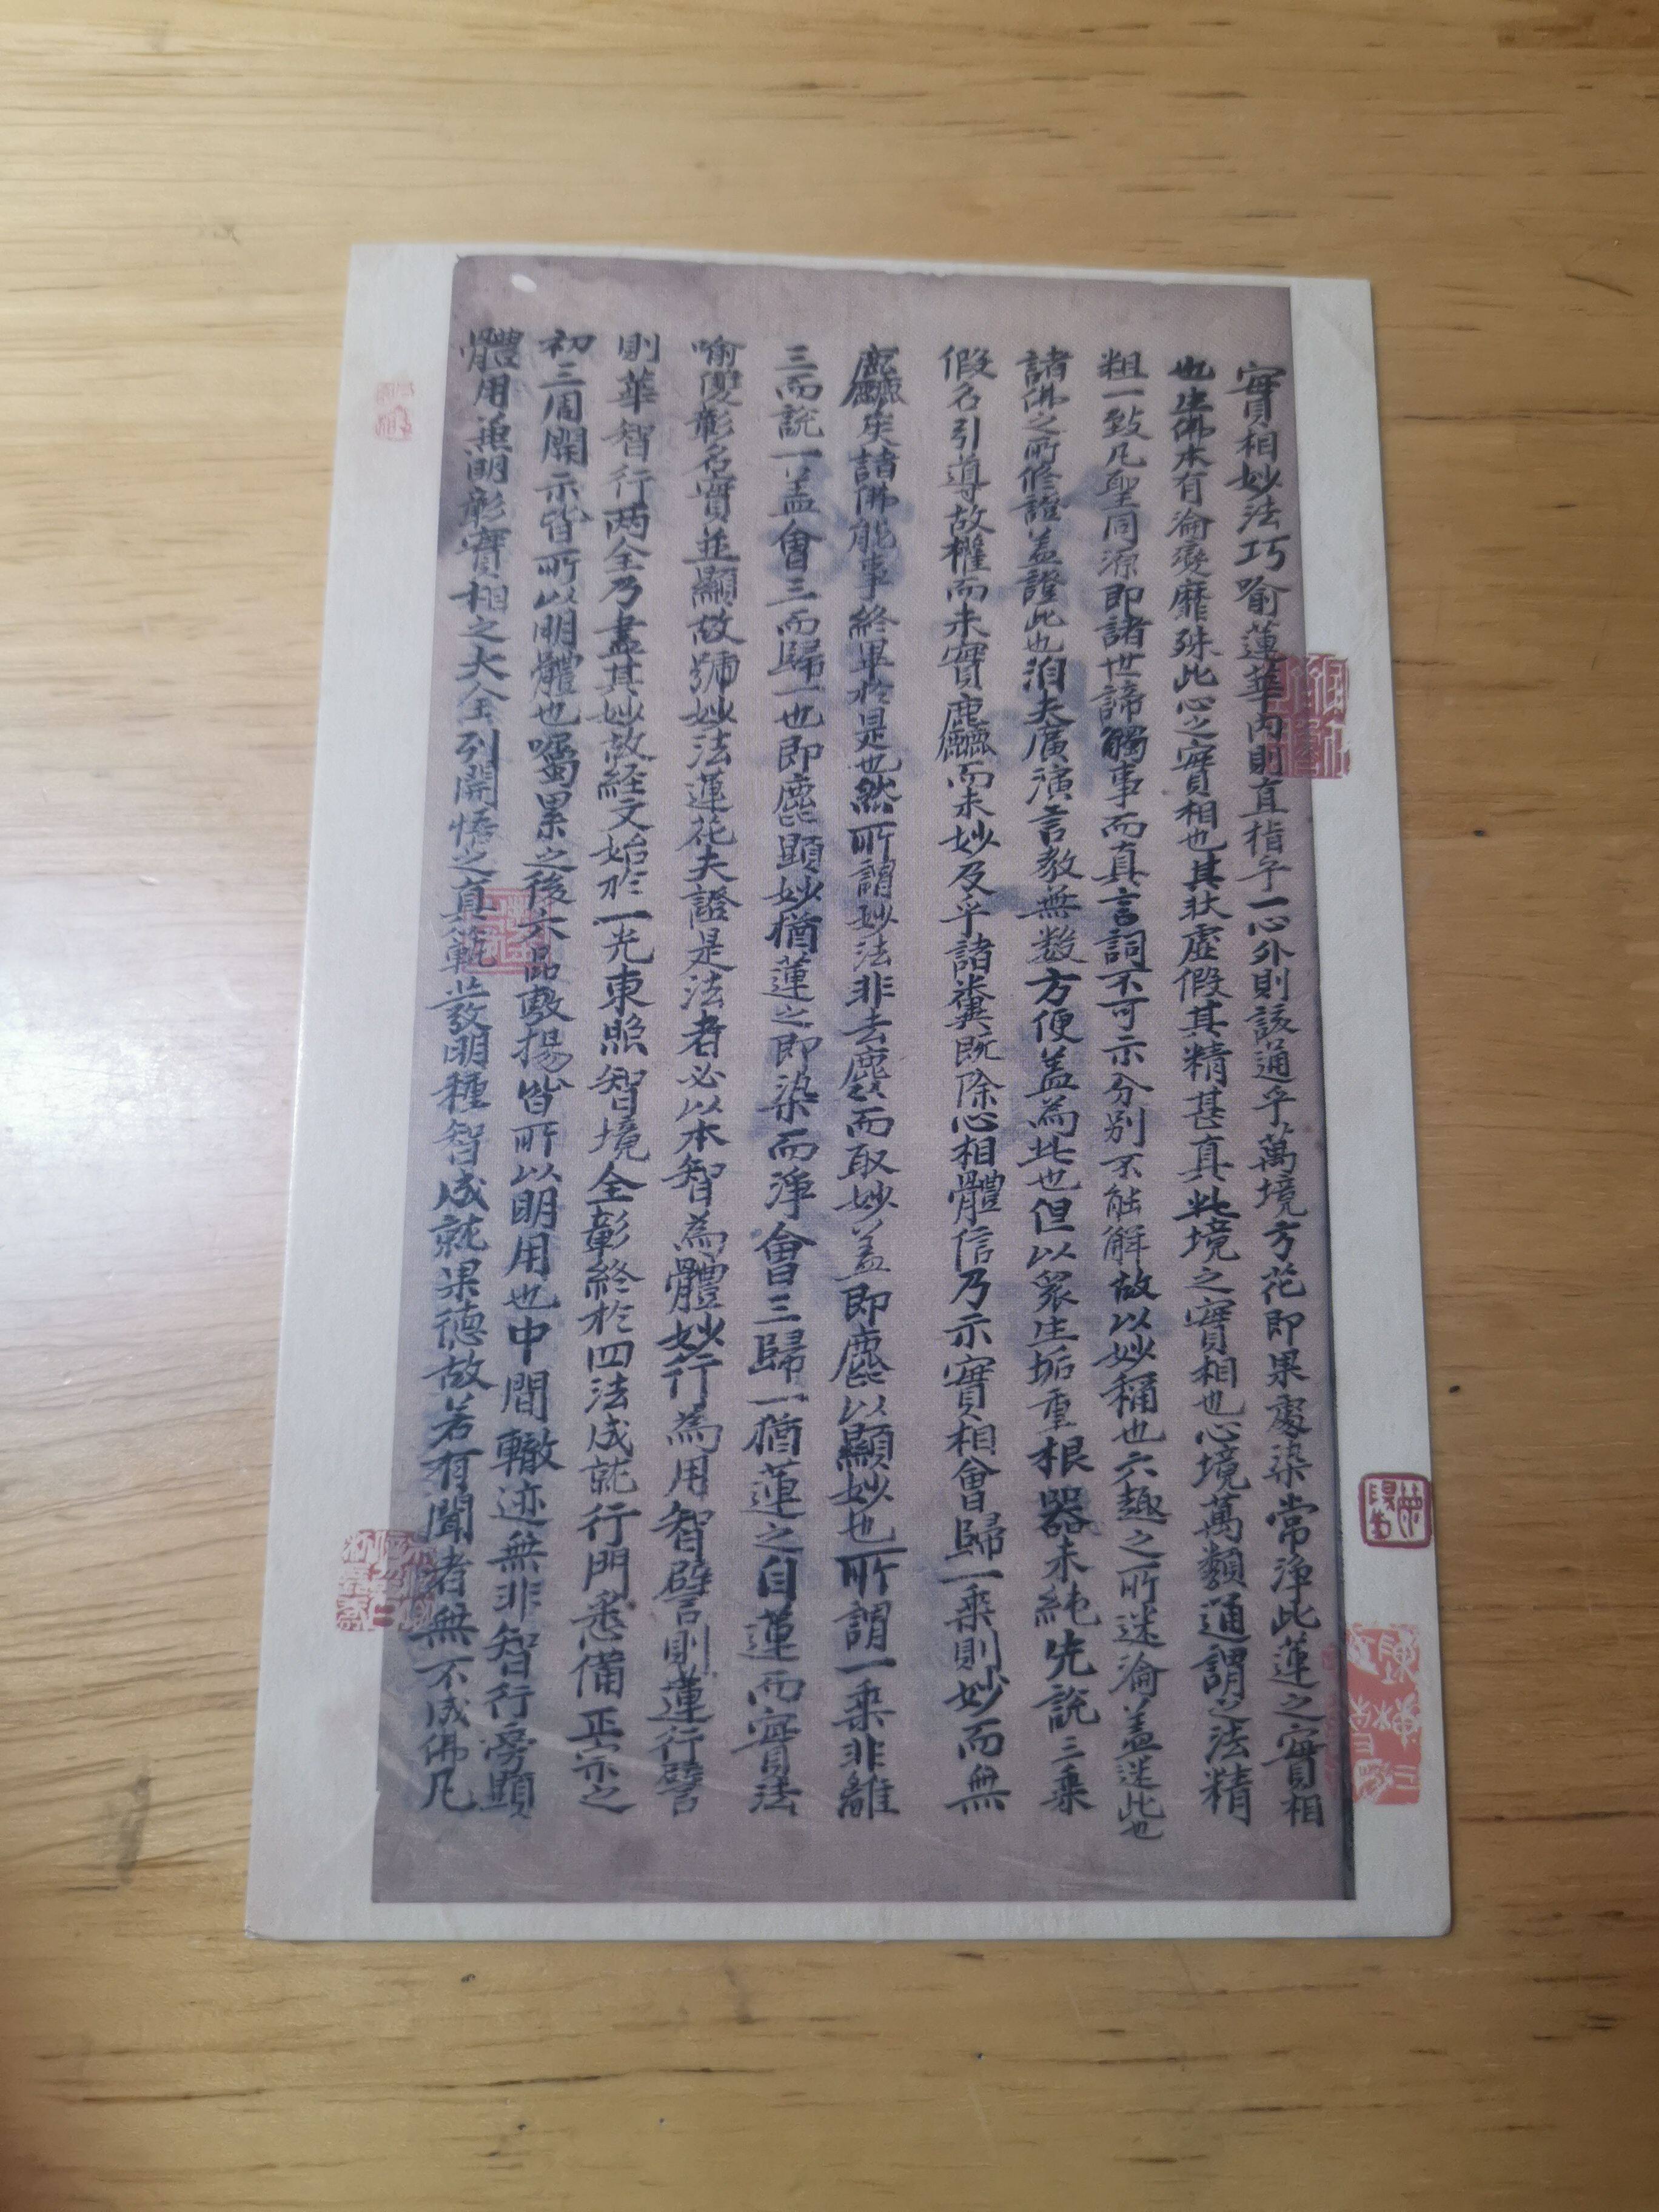 實相妙法巧喻蓮華內則直指乎一心外則該通乎萬境方花即果處染常淨此蓮之實相
也生佛本有淪變靡殊此心之實相也其狀虛假其精甚真此境之實相也心境萬類通謂之法精
粗一致凡聖同源即諸世諦觸事而真言詞不可示分別不能解故以妙稱也六趣之所迷淪盖迷此也
諸佛之所修證盖證此也洎夫廣演言教無数方便盖為此也但以衆生垢重根器未純先說三乘
假名引導故權而未實麁麤而未妙及乎諸糞既除心相體信乃示實相會歸一乘則妙而無
麁麤矣諸佛能事終畢於是也然所謂妙法非去麁而取妙盖即麁以顯妙也所謂一乘非離
三而說一盖會三而歸一也即麁顯妙猶蓮之即染而淨會三歸一猶蓮之自蓮而實法
喻雙彰名實並顯故號妙法蓮花夫證是法者必以本智為體妙行為用智譬則蓮行譬
則華智行两全乃盡其妙故経文始於一光東照智境全彰終於四法成就行門悉備正示之
初三周開示皆所以明體也囑累之後六品敷揚皆所以明用也中間轍迹無非智行旁顯
體用兼明彰實相之大全列開悟之真軌發明種智成就果德故若有聞者無不成佛凡